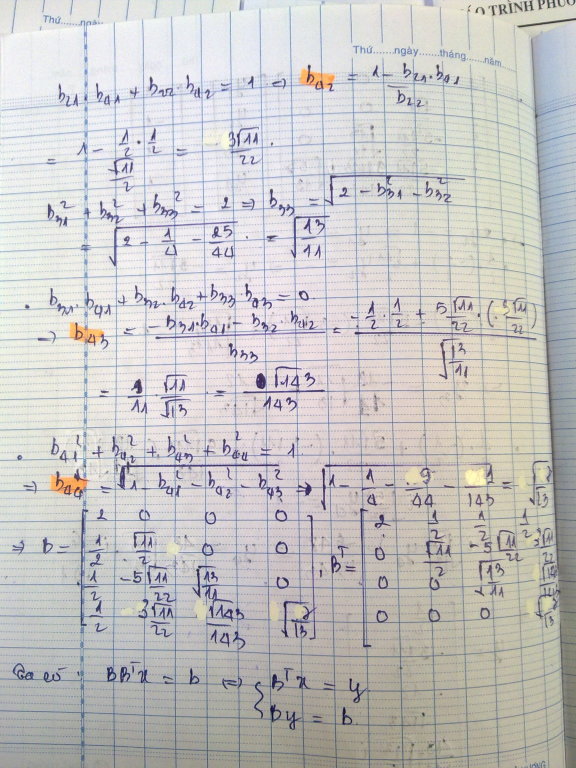 Thứ
ÁO TRÌNH PHƯƠ
Thứ......ngày.......tháng.......năm
b₂₁.b₄₁ + b₂₂.b₄₂ = 1 ⇒ b₄₂ = (1 - b₂₁.b₄₁)/b₂₂
= (1 - 1/2 . 1/2)/(√11/2) = 3√11/22 .
b₃₁² + b₃₂² + b₃₃² = 2 ⇒ b₃₃ = √(2 - b₃₁² - b₃₂²)
= √(2 - 1/4 - 25/44) . = √(13/11)
. b₃₁.b₄₁ + b₃₂.b₄₂ + b₃₃.b₄₃ = 0
→ b₄₃ = (-b₃₁.b₄₁ - b₃₂.b₄₂)/b₃₃ = (-1/2 . 1/2 + 5√11/22 . (3√11/22))/√(13/11)
= 1/11 . √11/√13 . = √143/143
. b₄₁² + b₄₂² + b₄₃² + b₄₄² = 1
⇒ b₄₄ = √(1 - b₄₁² - b₄₂² - b₄₃²) → √(1 - 1/4 - 9/44 - 1/143) =
⇒ B = [2 0 0 0 ; B^T = [2 1/2 1/2 1/2
1/2 √11/2 0 0 0 √11/2 -5√11/22 3√11/22
1/2 -5√11/22 √(13/11) 0 0 0 √(13/11)
1/2 3√11/22 √143/143 ] 0 0 0
Ta có BB^T x = b ⇔ { B^T x = y
By = b